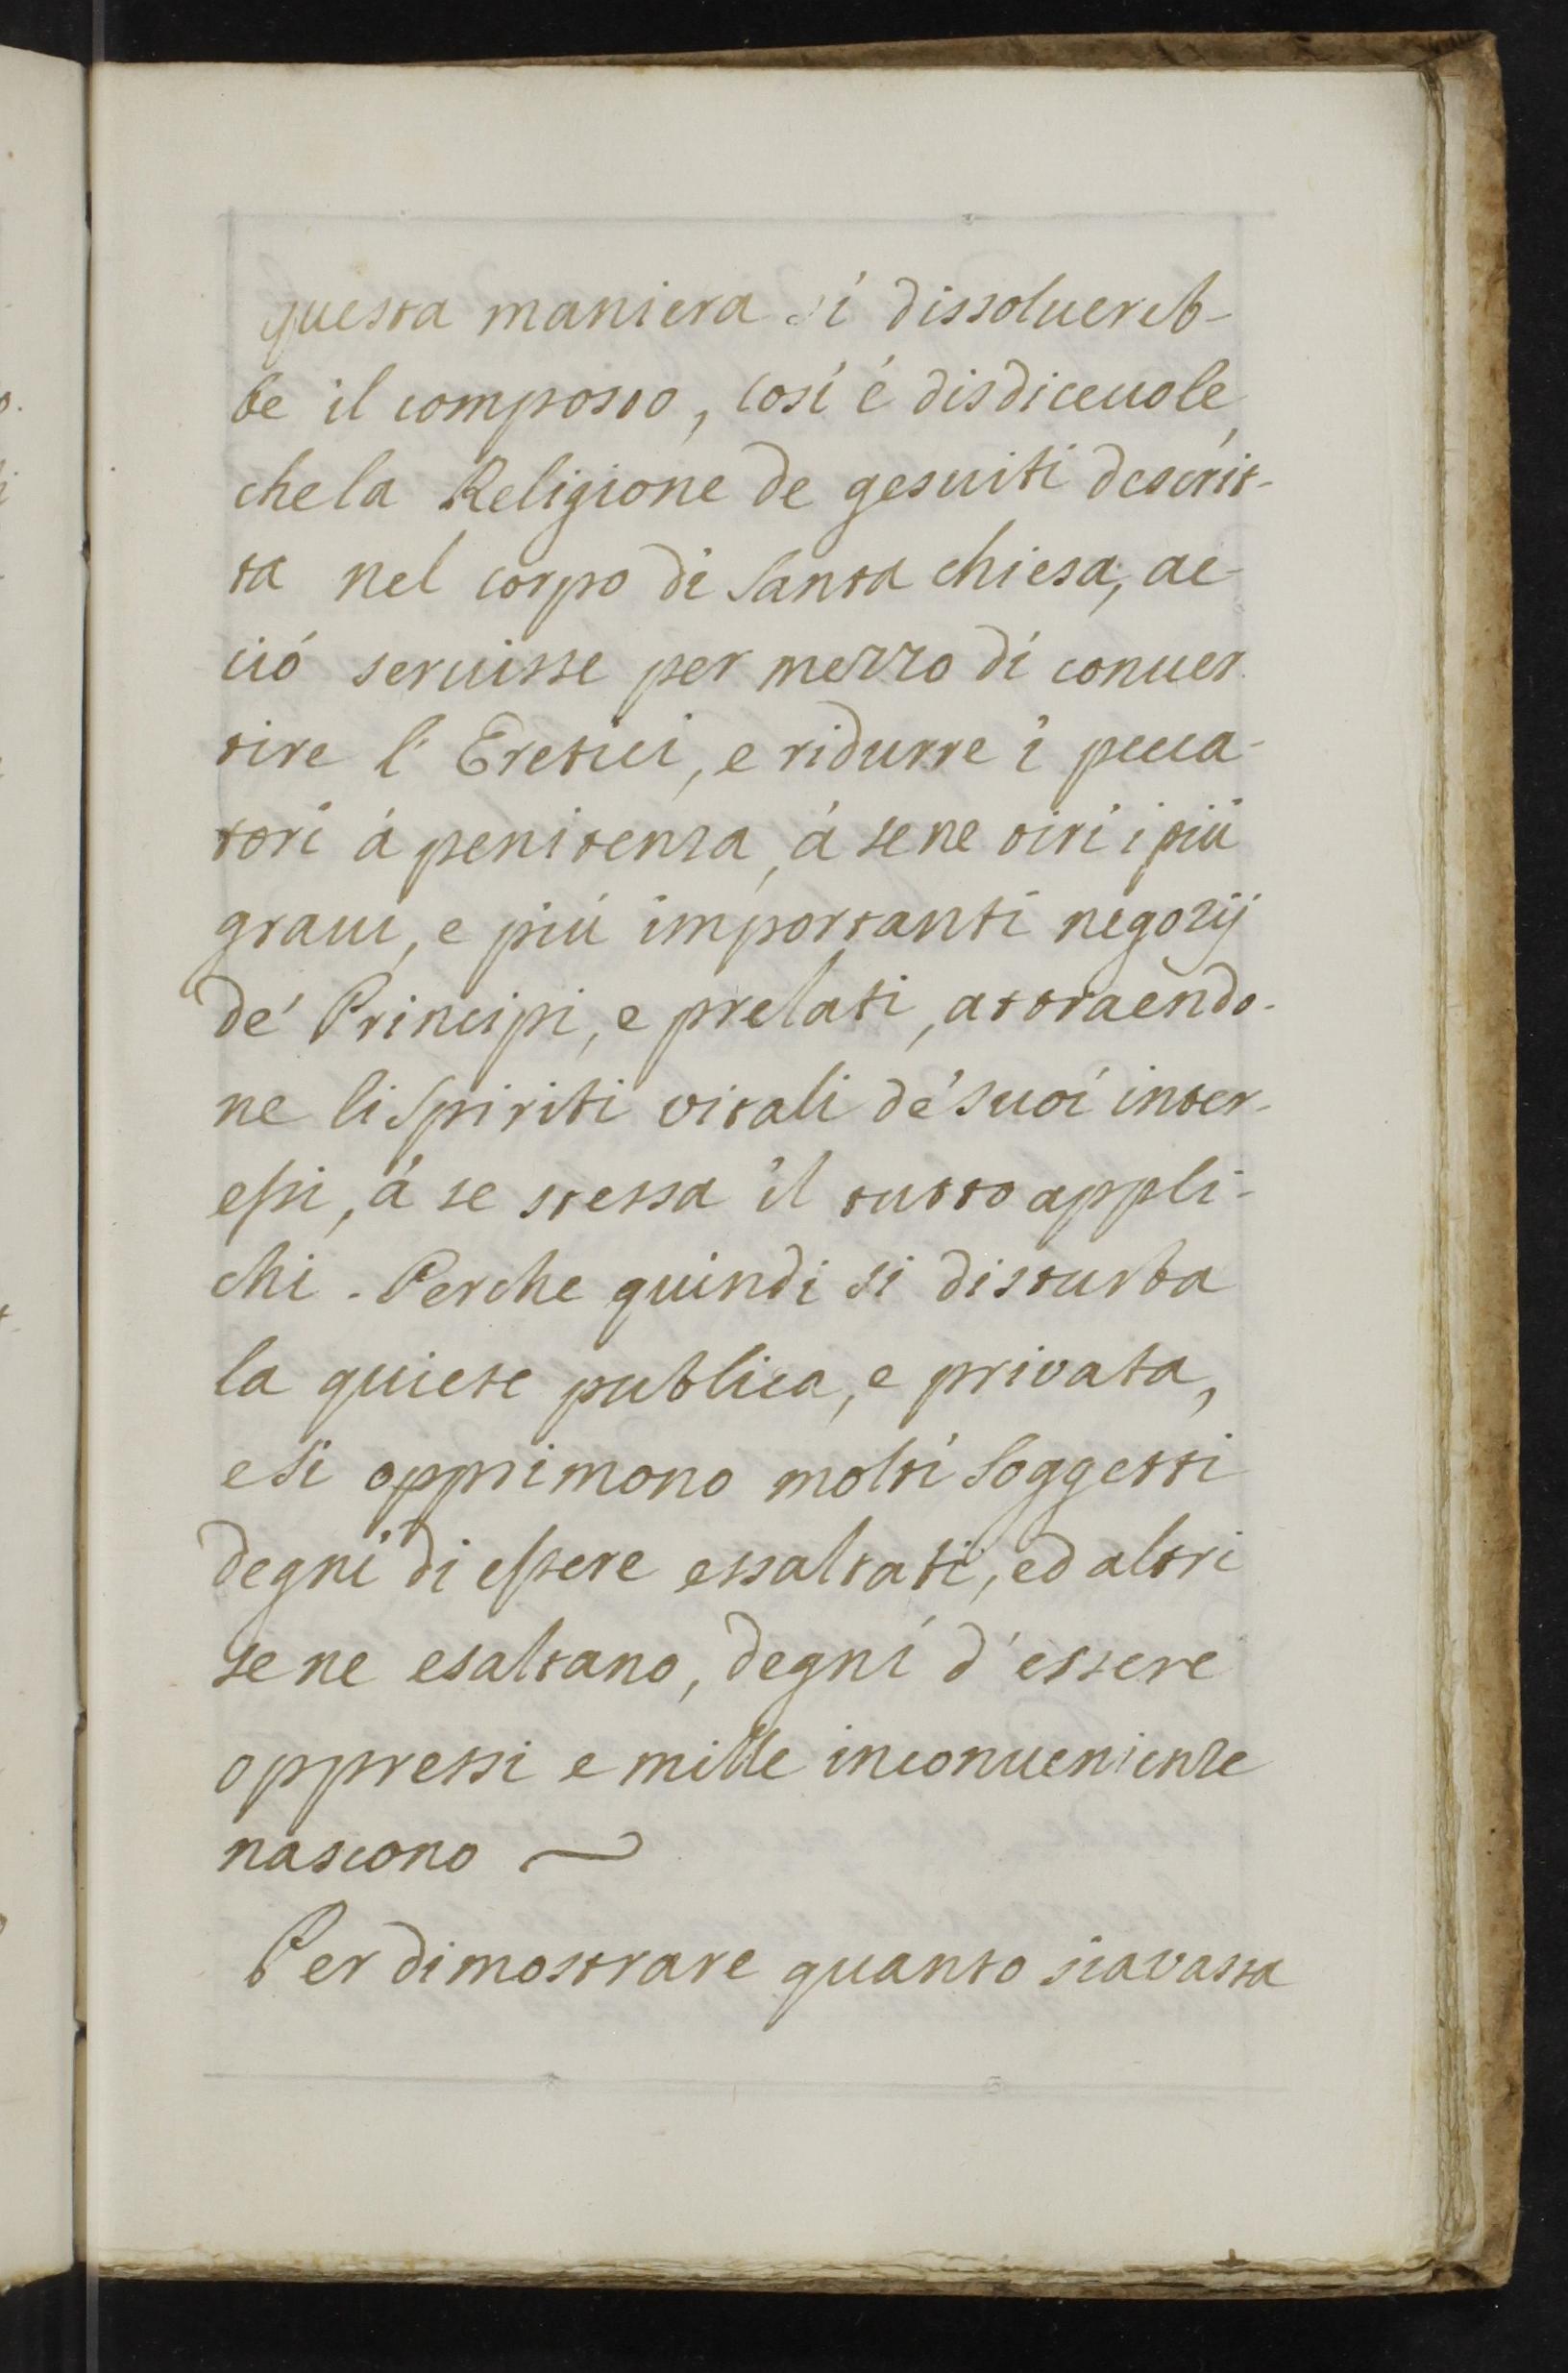 questa maniera si dissoluereb-
be il composto, così é disdiceuole,
che la Religione de gesuiti descrit-
ta nel corpo di Santa chiesa, ac-
ció seruisse per mezzo di conuer
tire l' Eretici, e ridurre i pecca-
tori á penitenza, á se ne tiri i più
graui, e più importanti negozij
de' Principi, e prelati, attraendo-
ne li Spiriti vitali de' suoi inter-
essi, á se stessa il tutto appli-
chi. Perche quindi si disturba
la quiete publica, e privata,
e si opprimono molti Soggetti
degni di essere essaltati, ed altri
se ne esaltano, degni d' essere
oppressi e mille inconuenienze
nascono ~
Per dimostrare quanto sia vasta